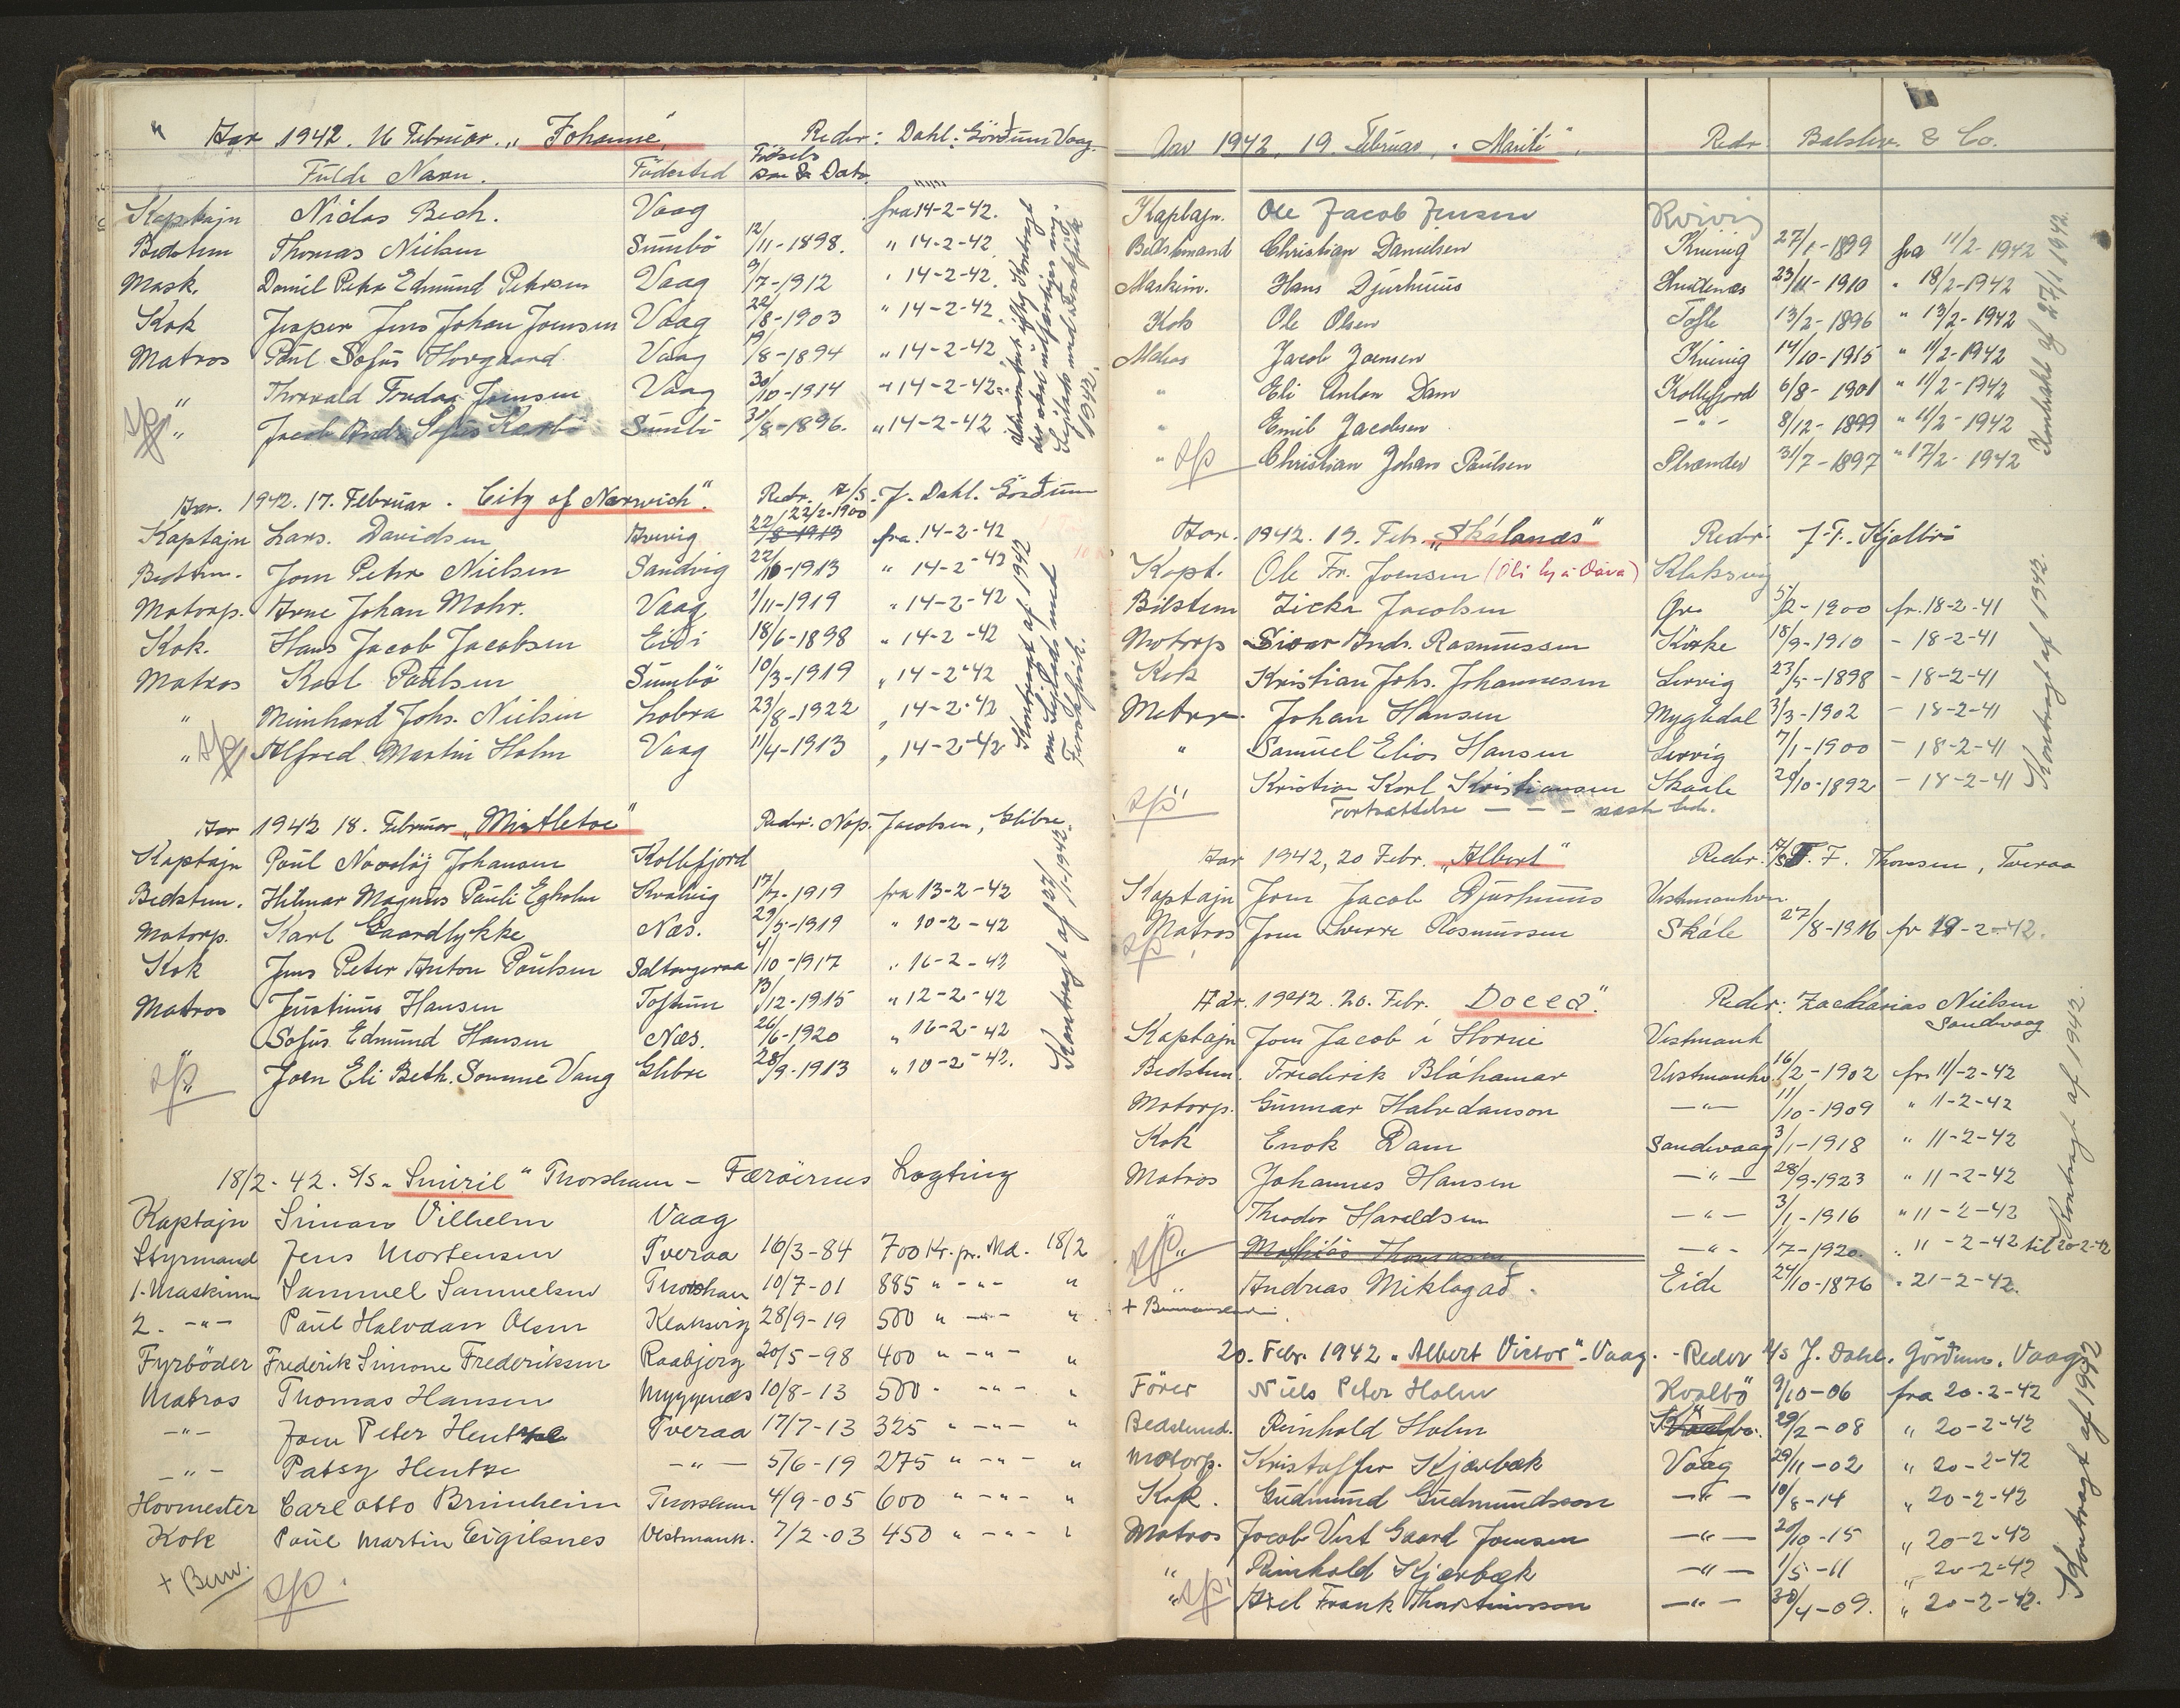 Aar 1942. 16 Februar. „Johanne" Redr: Dahl. Görðum Vaag.
Fulde Navn. Födested Födsels Aar & Dato
Kaptajn Niclas Bech. Vaag fra 14-2-42.
Bedstm Thomas Nielsen Sumbö 12/11-1898. " 14-2-42
Mask. Daniel Petur Edmund Petersen Vaag 9/7-1912 " 14-2-42
Kok Jesper Jens Johan Joensen Vaag 22/8-1903 " 14-2-42
Matros Paul Sofus Horgaard Vaag 19/8-1894 " 14-2-42
" Thorvald Joensen Vaag 30/10-1914 " 14-2-42
" Jacob Andr. Sofus Sumbö 31/8-1896. " 14-2-42
1942.
Aar. 1942. 17. Februar. „City of Norwich". Redr. A/S. J. Dahl. Görðum
Kaptajn Lars. Davidsen 22/2-1900 fra 14-2-42
Bedstm. Joen Petur Nielsen Sandvig 22/10-1913 " 14-2-42
Motorp. Arne Johan Mohr. Vaag 1/11-1919 " 14-2-42
Kok. Hans Jacob Jacobsen Eiði 18/6-1898 " 14-2-42
Matros Karl Paulsen Sumbö 10/3-1919 " 14-2-42
" Meinhard Johs. Nielsen Lobra 23/8-1922 " 14-2-42
" Alfred Martin Holm Vaag 11/4-1913 " 14-2-42
Kontragt af 1942
Aar 1942 18. Februar „Mistletoe" Redr. Nap. Jacobsen, Glibre
Kaptajn Poul Johansen Kollefjord
Bedstm. Hilmar Magnus Pauli Egholm Kvalvig 17/7-1919 fra 13-2-42
Motorp. Karl Gaardlykke Næs. 29/5-1919 " 10-2-42
Kok Jens Peter Anton Poulsen Saltangeraa 4/10-1917 " 16-2-42
Matros Justinus Hansen Toftum 13/12-1915 " 12-2-42
Sofus Edmund Hansen Næs. 26/6-1920 " 16-2-42
" Joen Eli Beth. Somme Vang Glibre 28/9-1913 " 10-2-42.
Kontragt af 27/1-1942
18/2-42. S/S „Smiril" Thorshavn - Færöernes Lagting
Kaptajn Simon Vilhelm Vaag
Styrmand Jens Mortensen Tveraa 16/3-84 700 Kr. pr. Md. 18/2
1. Maskinm Sammuel Samuelsen Thorshavn 10/7-01 885 " - " - "
2. - " - Paul Halvdan Olsen Klaksvig 28/9-19 500 " - " - "
Fyrböder Frederik Simone Frederiksen Raabjerg 20/5-98 400 " - " - "
Matros Thomas Hansen Myggenæs 10/8-13 500 - " - "
- " - Joen Peter Hentze Tveraa 17/7-13 325 " - " - "
- " - Patsy Hentze - " - 5/6-19 275 " - " - "
Hovmester Carl Otto Brimheim Thorshavn 4/9-05 600 " - " - "
Kok Poul Martin Eigilsnes Vestmanh. 7/2-03 450 " - " - "
+ Bem.
Aar 1942, 19. Februar, „Marite", Redr: Balslev. & Co.
Kaptajn. Ole Jacob Jensen Kvivig
Bedstmand Christian Danielsen Kvivig 27/1-1899 fra 11/2-1942
Maskinm. Hans Djurhuus 23/11-1910 " 18/2-1942
Kok Ole Olsen Tofte 13/2-1896 " 13/2-1942
Matros Jacob Joensen Kvivig 14/10-1915 " 11/2-1942
" Eli Anton Dam Kollefjord 6/8-1901 " 11/2-1942
" Emil Jacobsen - " - 8/12-1899 " 11/2-1942
" Christian Johan Paulsen Strænder 31/7-1897 " 17/2-1942
Kontrakt af 27/1 1942.
Aar. 1942. 19. Febr. „Skálanæs" Redr: J. F. Kjølbro
Kapt. Ole Fr. Joensen Klaksvig
Bestm Zickr Jacobsen 5/2-1900 fr. 18-2-41
Motorp Sivar Andr. Rasmussen Kirke 18/9-1910 - 18-2-41
Kok Kristian Johs. Johannesen Lervig 23/5-1898 - 18-2-41
Matr. Johan Hansen Mygledal 3/3-1902 - 18-2-41
" Samuel Elias Hansen Lervig 7/1-1900 - 18-2-41
" Kristian Karl Kristiansen Skaale 29/10-1892 - 18-2-41
Fortsættelse - - - næste side.
Kontragt af 1942
Aar 1942, 20 Febr. „Albert" Redr: A/S T. F. Thomsen, Tveraa
Kaptajn Joen Jacob Djurhuus Vestmanhvn
Matros Joen Sverre Rasmussen Skále 27/8-1916 fr 19-2-42.
Aar. 1942. 20. Febr. „Docea". Redr: Zacharias Nielsen
Sandvaag
Kaptajn Joen Jacob í Horni Vestmanh
Bedstm. Frederik Bláhamar Vestmanhv 16/2-1902 fr. 11-2-42
Motorp. Gunnar Halvdanson - " - 11/10-1909 " 11-2-42
Kok Enok Dam Sandevaag 3/1-1918 " 11-2-42
Matros Johannes Hansen - " - 28/9-1923 " 11-2-42
" Theodor Haraldsen - " - 3/1-1916 " 11-2-42
" Mathias Thomasen - " - 7-1920. " 11-2-42 til 20-2-42
" Andreas Miklagað. Eide 24/10-1876 " 21-2-42.
Kontragt af 1942.
20. Febr. 1942 „Albert Victor". Vaag. - Reder A/S J. Dahl. Görðum. Vaag
Förer Niels Peter Holm Hvalbö 9/10-06 fra 20-2-42
Bedstmd. Reinhold Holm 29/2-08 " 20-2-42
Motorp. Kristoffer Kjærbæk Vaag 29/11-02 " 20-2-42
Kok. Gudmund Gudmundsson - " - 10/8-14 " 20-2-42
Matros Jacob Vest Gaard Joensen - " - 20/10-15 " 20-2-42
" Reinhold Kjærbæk - " - 1/5-11 " 20-2-42
" Axel Frank Thorsteinsson - " - 30/4-09. " 20-2-42.
Kontragt af 1942